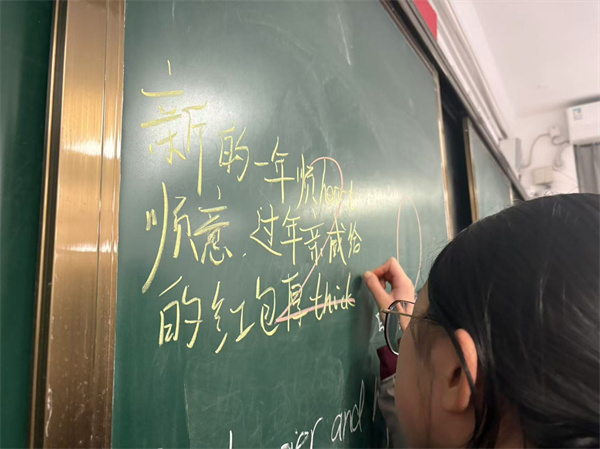 新的一年顺
顺意,过年亲戚给
的红包再thick
and